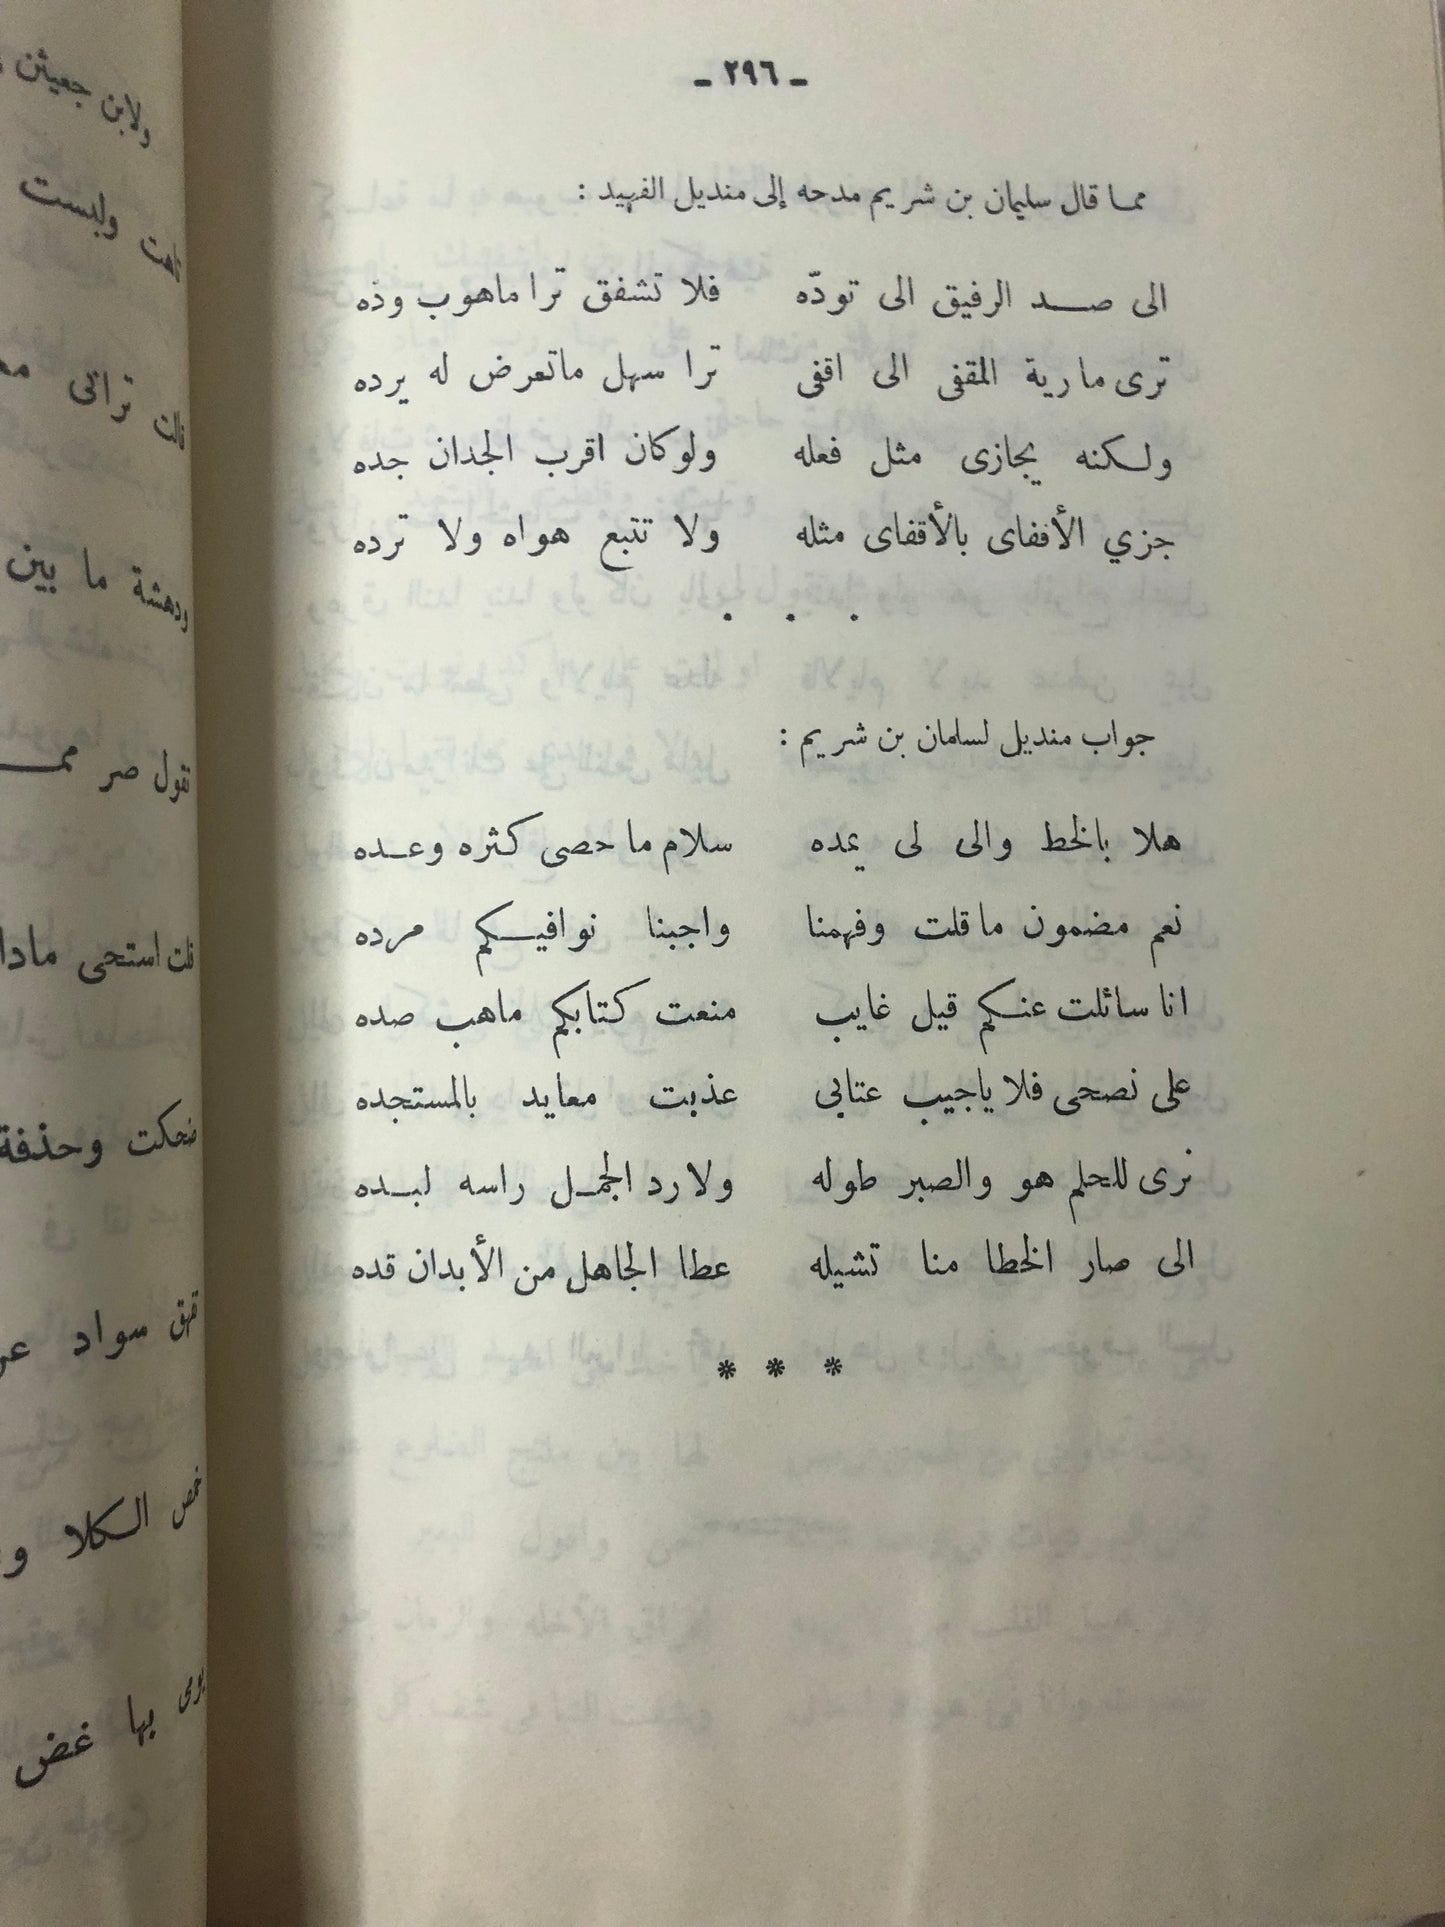 - ٢٩٦ -
مما قال سليمان بن شريم مدحه إلى منديل الفهيد :
الى صد الرفيق الى تودّه فلا تشفق ترا ماهوب وذه
ترى مارية المقفى الى اقفى ترا سهل ماتعرض له يرده
ولكنه يجازى مثل فعله ولوكان اقرب الجدان جده
جزي الأقفاى بالأقفاى مثله ولا تتبع هواه ولا ترده
. . .
جواب منديل لسلمان بن شريم :
هلا بالخط والى لى يمده سلام ما حصى كثره وعده
نعم مضمون ماقلت وفهمنا واجبنا نوافيكم مرده
انا سائلت عنكم قيل غايب منعت كتابكم ماهب صده
على نصحى فلا ياجيب عتابى عذبت معايد بالمستجده
نرى للحلم هو والصبر طوله ولا رد الجمل راسه لبده
الى صار الخطا منا تشيله عطا الجاهل من الأبدان قده
* * *
ولابن جعيثن
تاهت ولبست
قالت تراتى
ودهشة ما بين
تقول صر ممـ
قلت استحى مادا
ضحكت وحذفة
تهق سواد
خمص الكلا و
يومى بها غض